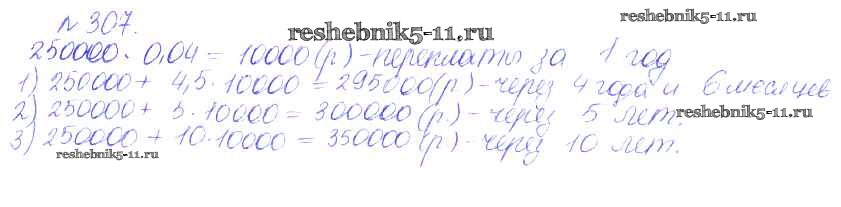 № 307.
reshebnik5-11.ru
reshebnik5-11.ru
250000 · 0,04 = 10000 (р) - переплаты за 1 год
1) 250000 + 4,5 · 10000 = 295000 (р) - через 4 года и 6 месяцев
2) 250000 + 5 · 10000 = 300000 (р.) - через 5 лет.
reshebnik5-11.ru
3) 250000 + 10 · 10000 = 350000 (р) - через 10 лет.
reshebnik5-11.ru